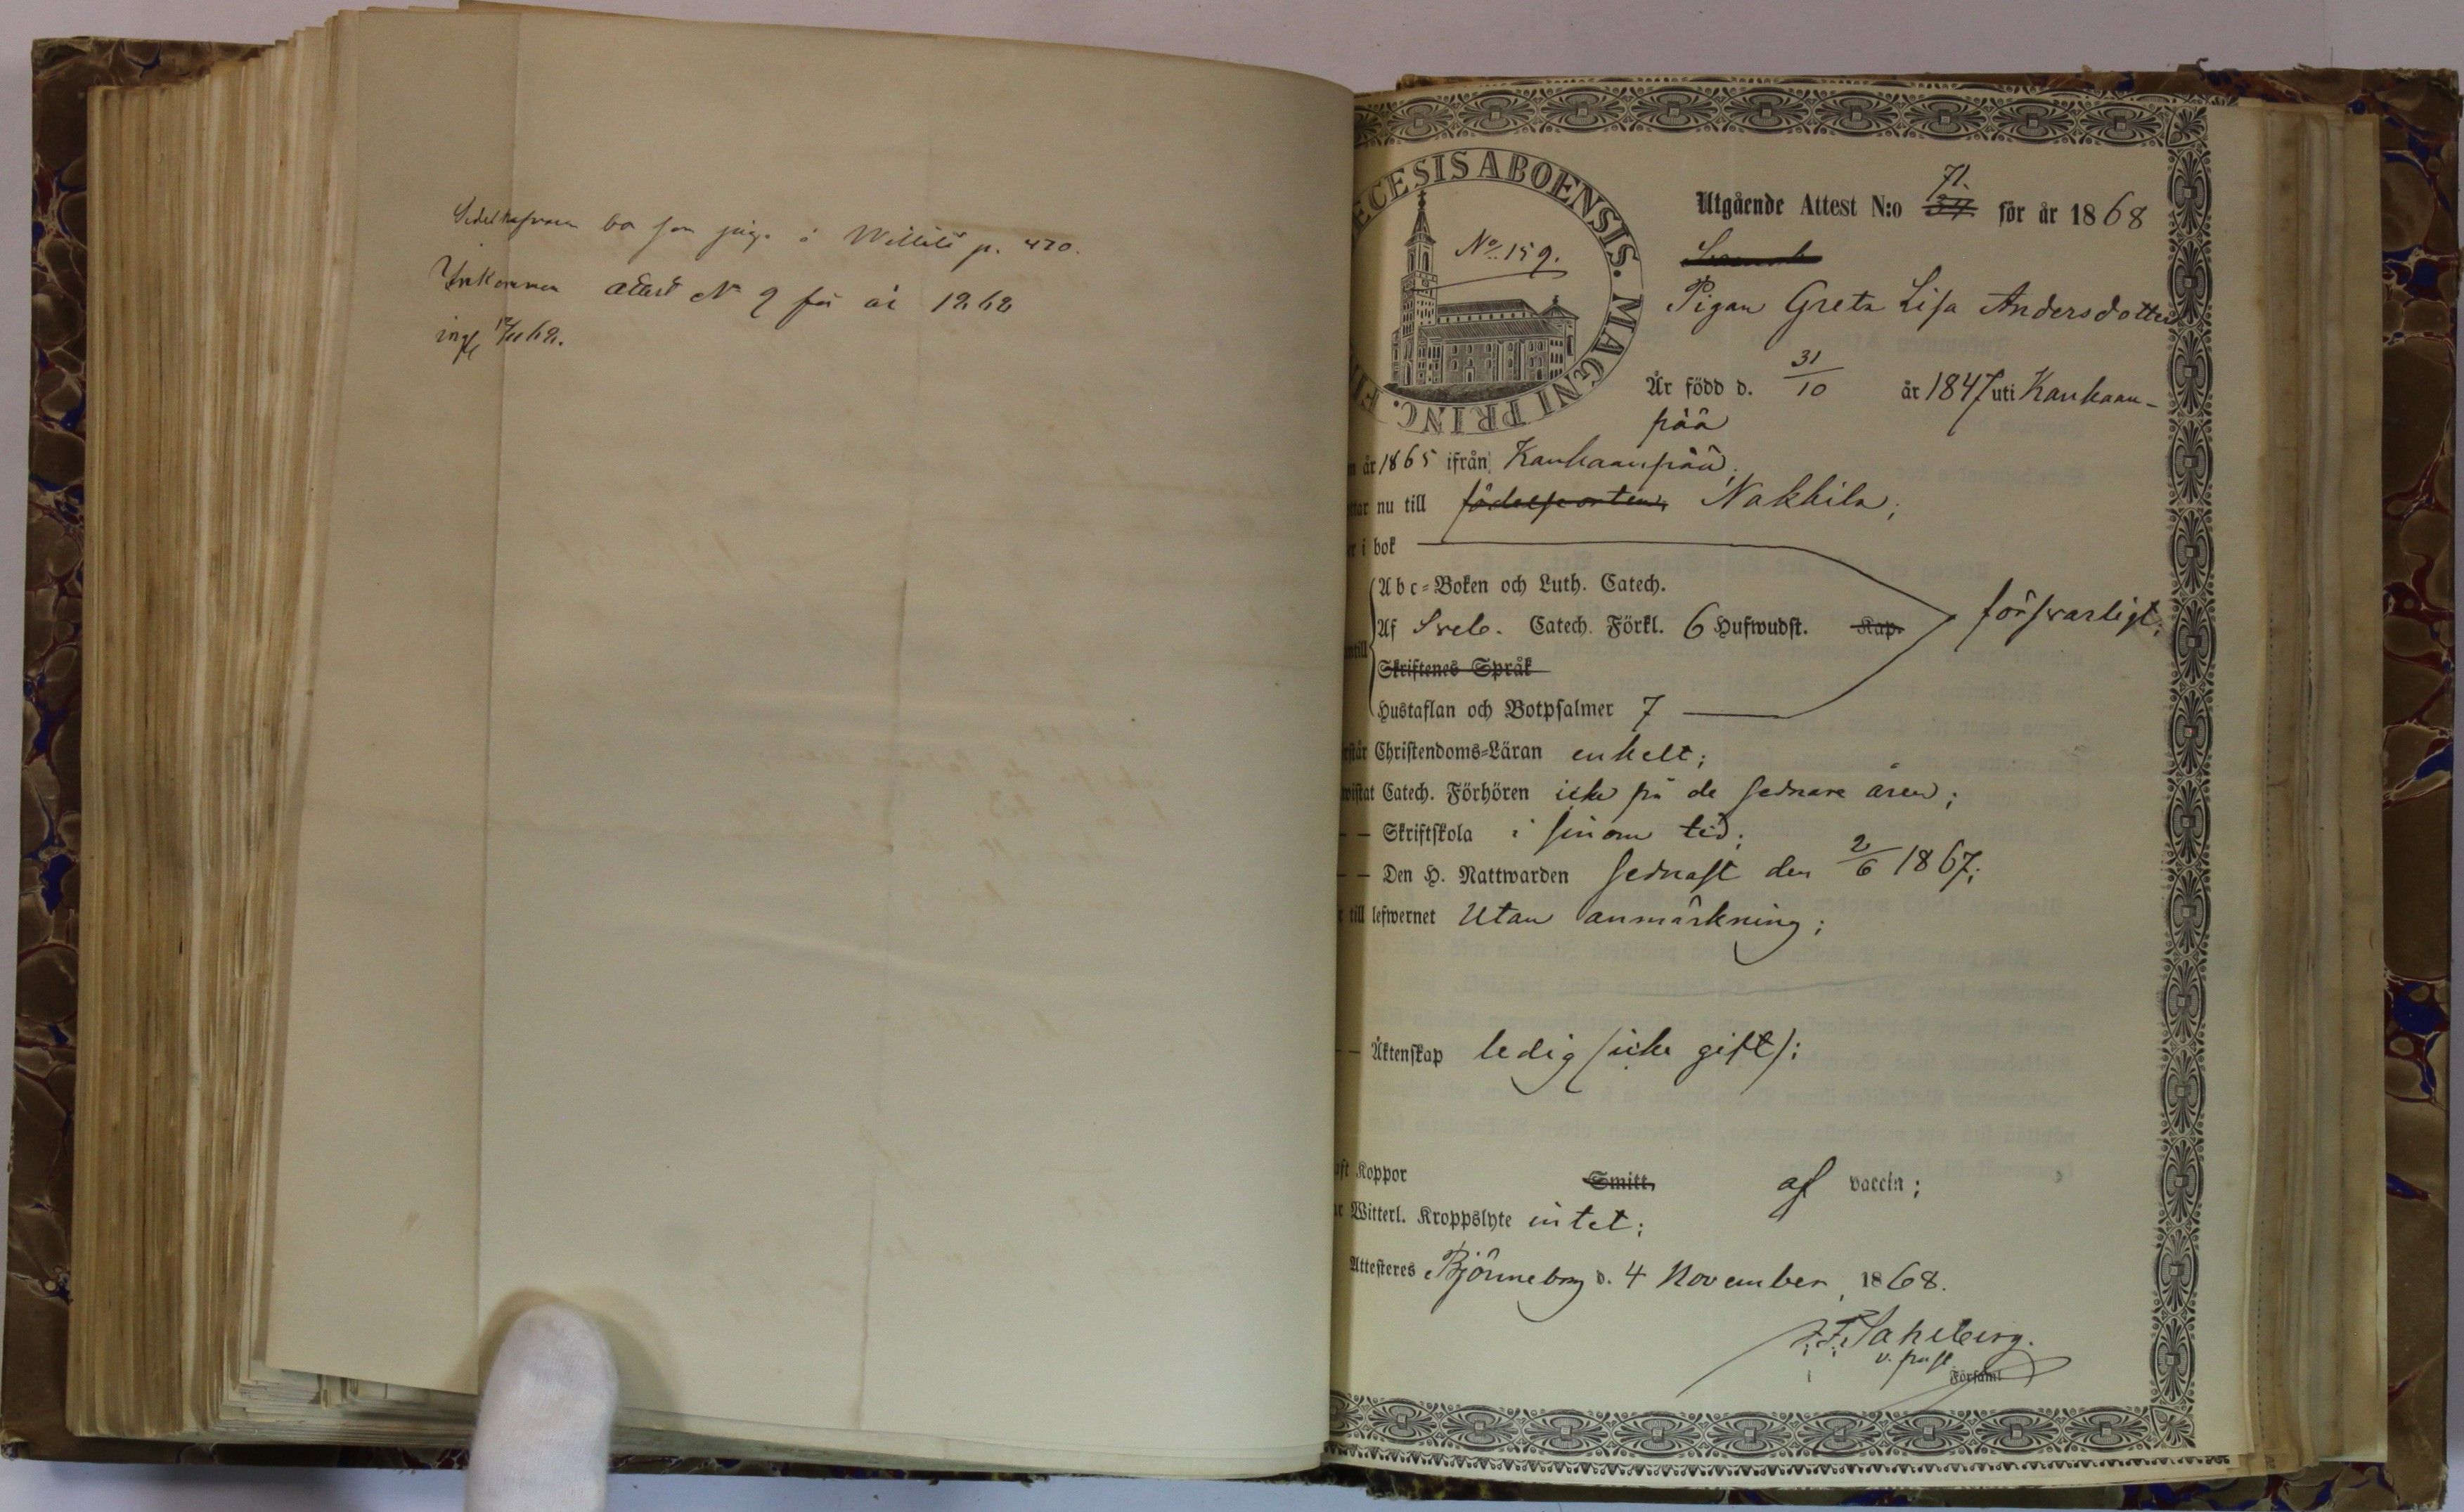 Sedelhafvaren bor som piga i Willilä p. 420.
Inkommen attest No 9 för år 1868
ECESIS ABOENSIS. MAGNI PRINC. FIN
No. 159.
Utgående Attest N:o 71. 34 för år 1868
Pigan Greta Lisa Andersdotter
Är född d. 31/10 år 1847 uti Kankaan-
pää
n år 1865 ifrån Kankaanpää;
ttar nu till födelseorten, Nakkila;
r i bok
Abc-Boken och Luth. Catech.
Af Sveb. Catech. Förkl. 6 Hufwudst. Kap. försvarligt;
antill
Skriftenes Språk
Hustaflan och Botpsalmer 7
rstår Christendoms-Läran enkelt;
wistat Catech. Förhören icke på de sednare åren;
— — Skriftskola i sinom tid;
— — Den H. Nattwarden sednast den 2/6 1867;
r till lefwernet utan anmärkning;
— — Äktenskap ledig (icke gift);
aft Koppor Smitt, af vaccin;
ar Witterl. Kroppslyte intet;
Attesteres Björneborg d. 4 November 1868.
F. Sahlberg.
v. past.
Församl